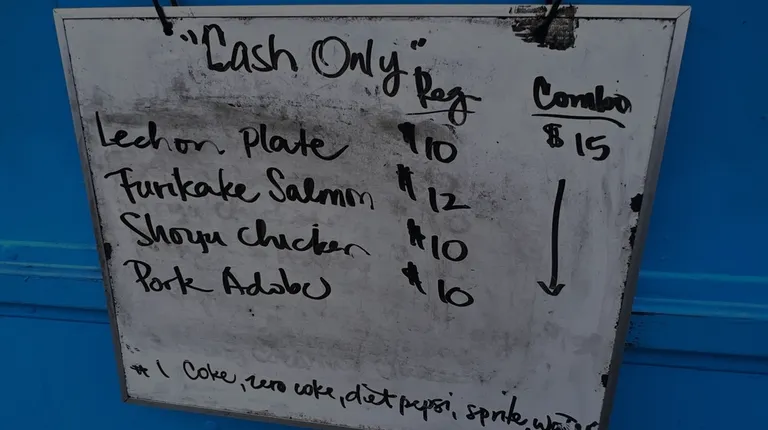 "Cash Only"
Reg Combo
Lechon Plate $10 $15
Furikake Salmon $12
Shoyu Chicken $10
Pork Adobo $10
$1 Coke, zero coke, diet pepsi, sprite, water